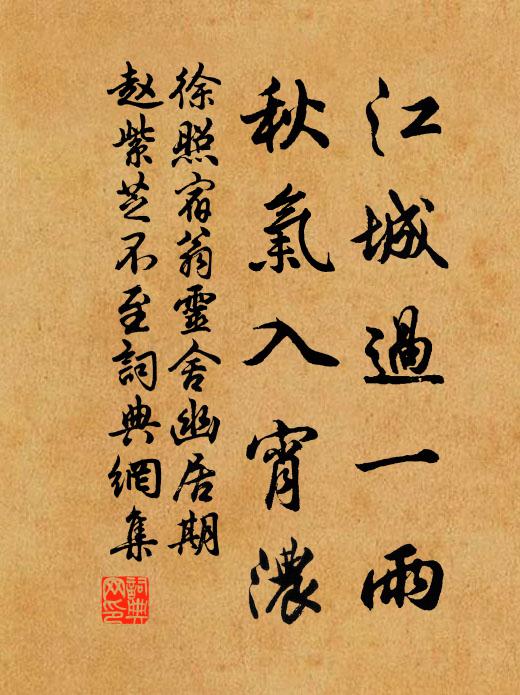 江城過一雨
秋氣入宵濃
徐照宿翁靈舍幽居期
趙紫芝不至詞典網集
詞典
网印